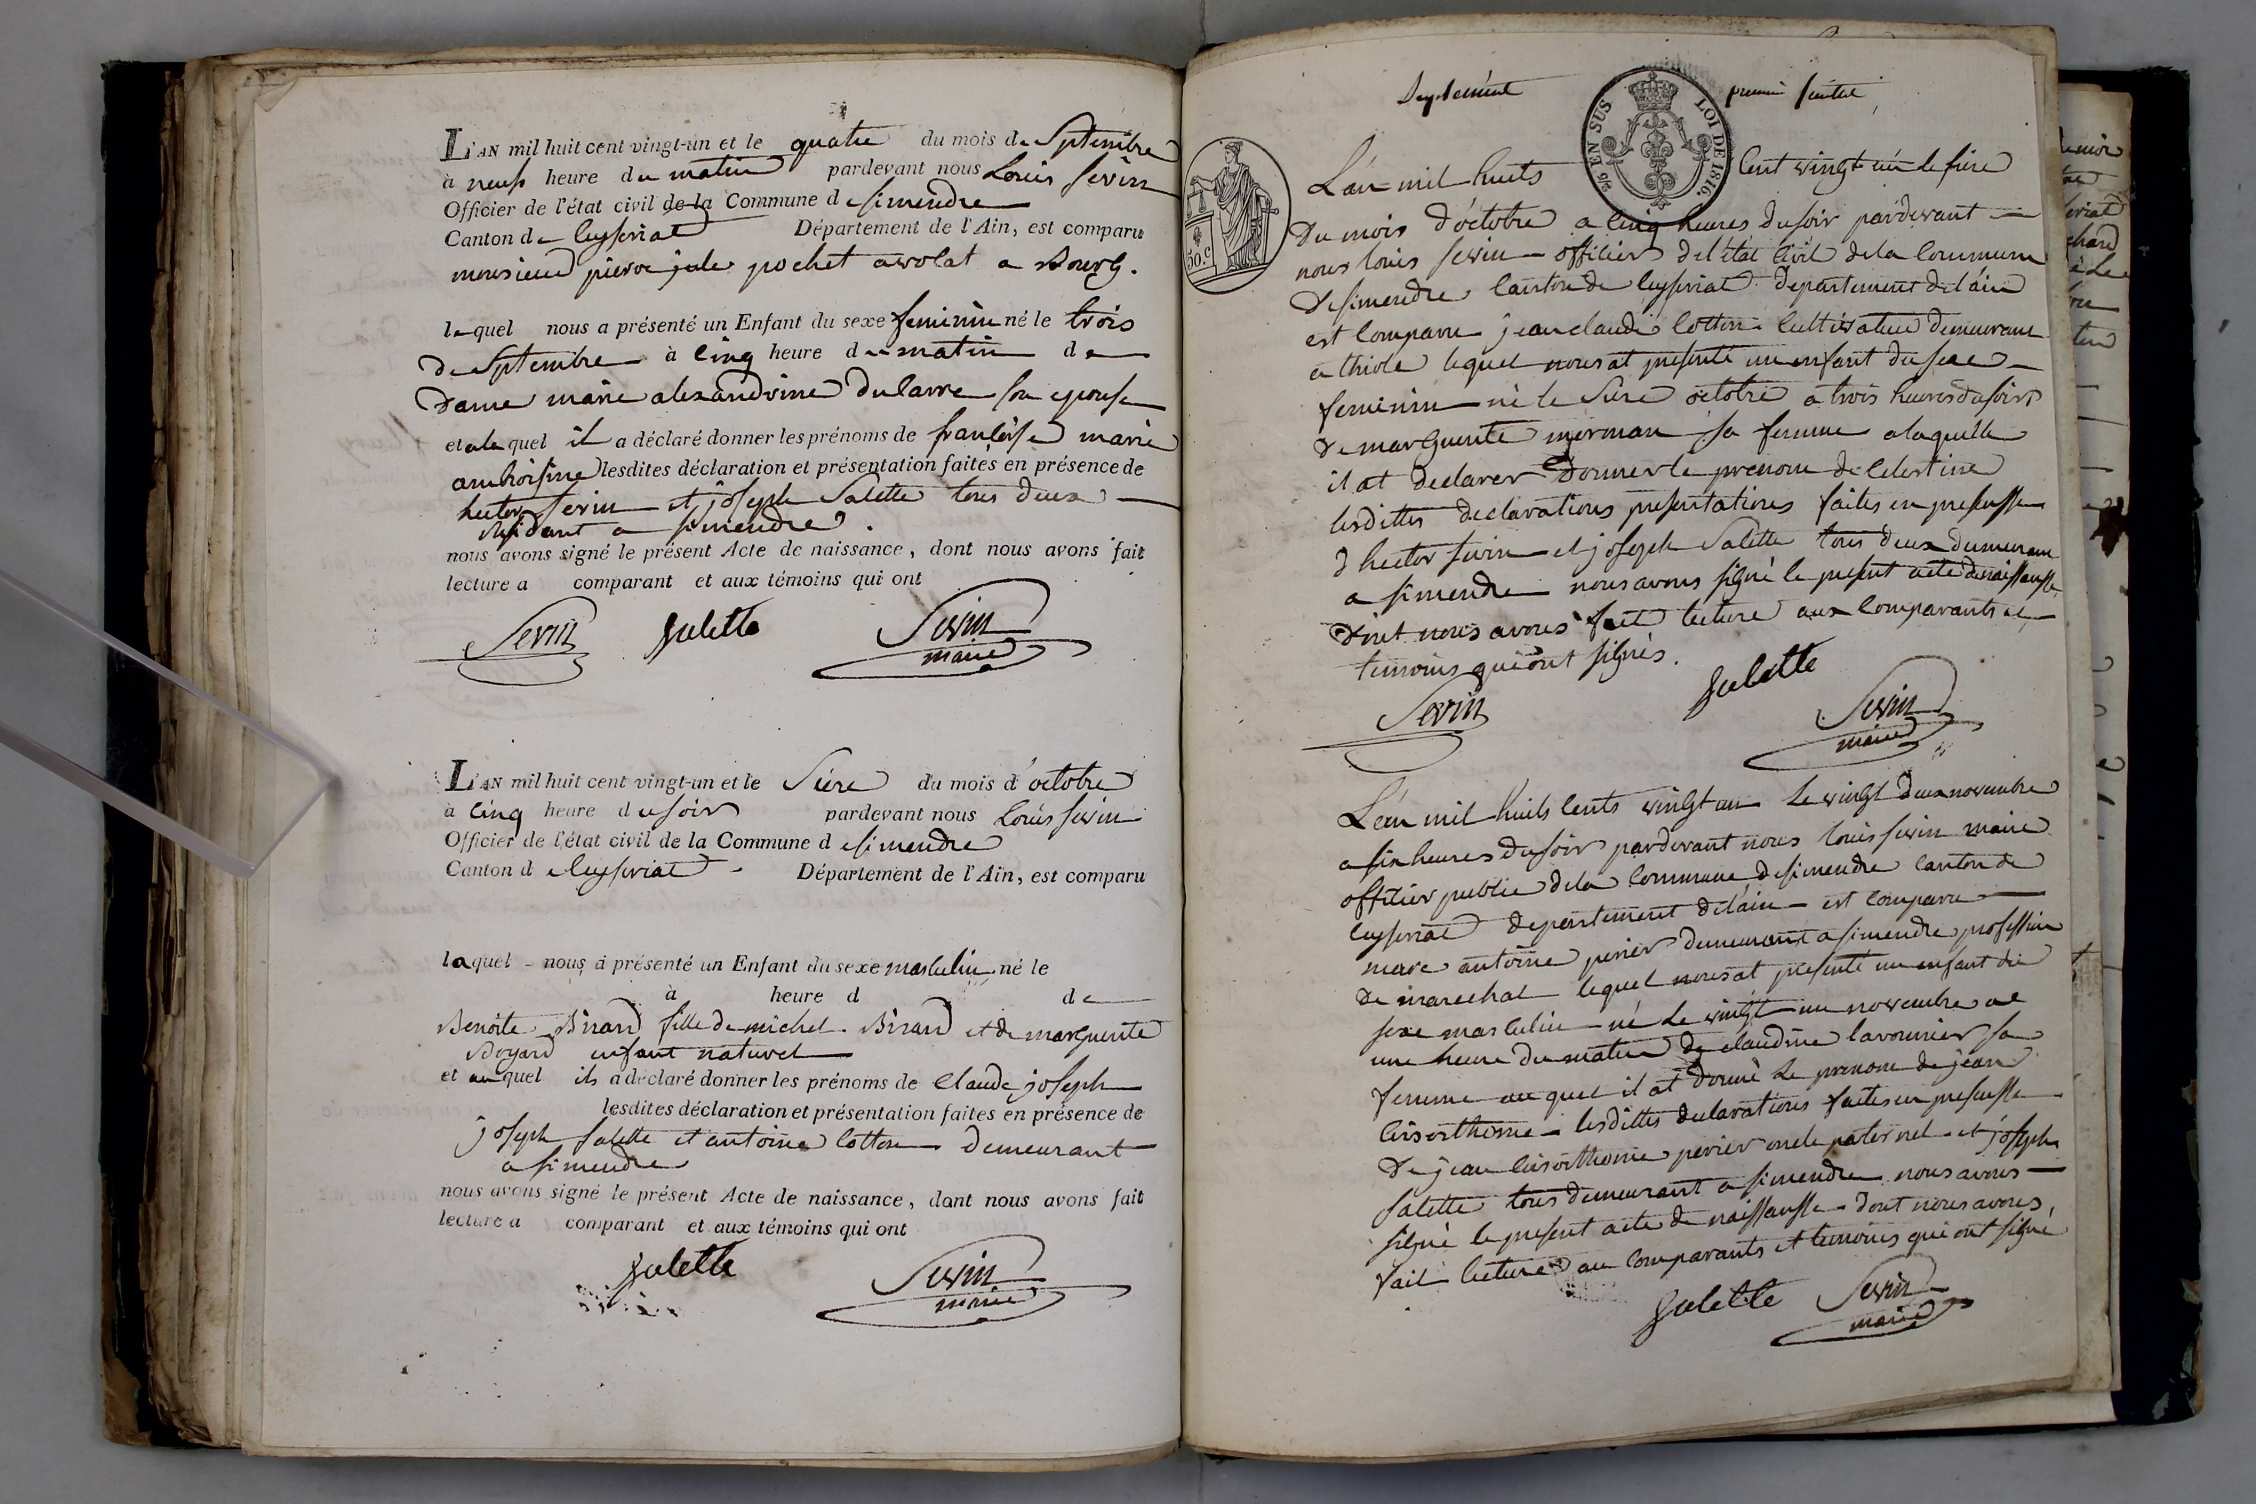 L'AN mil huit cent vingt-un et le quatre du mois de Septembre
à neuf heure du matin pardevant nous Louis Sevin
Officier de l'état civil de la Commune de simendre
Canton de Ceyseriat Département de l'Ain, est comparu
monsieud pierre jule pochet avocat a Bourg.
lequel nous a présenté un Enfant du sexe feminin né le trois
de Septembre à cinq heure du matin de
Dame marie alexandrine Dulavre son epouse
et alequel il a déclaré donner les prénoms de françoise marie
ambroisine lesdites déclaration et présentation faites en présence de
hector Sevin et joseph Salette tous deux
Residant a simendre.
nous avons signé le présent Acte de naissance, dont nous avons fait
lecture a comparant et aux témoins qui ont
Sevin Salette Sevin
maire
L'AN mil huit cent vingt-un et le Sicre du mois d'octobre
à cinq heure du soir pardevant nous Louis Sevin
Officier de l'état civil de la Commune de simendre
Canton de Ceyseriat Département de l'Ain, est comparu
laquel nous a présenté un Enfant du sexe masculin né le
à heure d de
Benoite Birard fille de michel Birard et de marguerite
Boyard enfant naturel
et auquel ils a déclaré donner les prénoms de Claude joseph
lesdites déclaration et présentation faites en présence de
joseph Salette et antoine cotton demeurant
a simendre
nous avons signé le présent Acte de naissance, dont nous avons fait
lecture a comparant et aux témoins qui ont
Salette Sevin
maire
Suplement premier feuillet
9/10 EN SUS LOI DE 1816.
50.c
L'an mil huits Cent vingt un le sicre
Du mois d'octobre a cinq heures du soir pardevant
nous louis Sevin officier de l'état civil de la Commune
De simendre Canton de Ceyseriat Departement de l'ain
est Comparu jean claude cotton Cultivateur Demeurant
a thiole lequel nous at presenté un enfant du sexe
feminin né le Sicre octobre a trois heures du soir
De marguerite morman sa femme a laquelle
il at declarer Donner le prenom de Celestine
lesdittes declarations presentations faites en presensse
d hector Sevin et joseph Salette tous deux demeurant
a simendre nous avons signé le present acte de naissansse
Dont nous avons fait lecture aux Comparants et
temoins qui ont signés.
Sevin Salette Sevin
maire
L'an mil huits Cents vingt un Le vingt deux novembre
a six heures du soir pardevant nous louis Sevin maire
officier public de la Commune de simendre Canton de
Ceyseriat Departement de l'ain est Comparu
marc antoine perier Demeurant a simendre profession
De marechal lequel nous at presenté un enfant du
sexe masculin né Le vingt un novembre a
une heure du matin de claudine lavourier sa
femme au quel il at Donné Le prenom de jean
Crisosthome lesdittes declarations faites en presensse
De jean Crisosthome perier oncle paternel et joseph
Salette tous demeurant a simendre nous avons
signé le present acte de naissansse dont nous avons
fait lecture au Comparants et temoins qui ont signé
Salette Sevin
maire